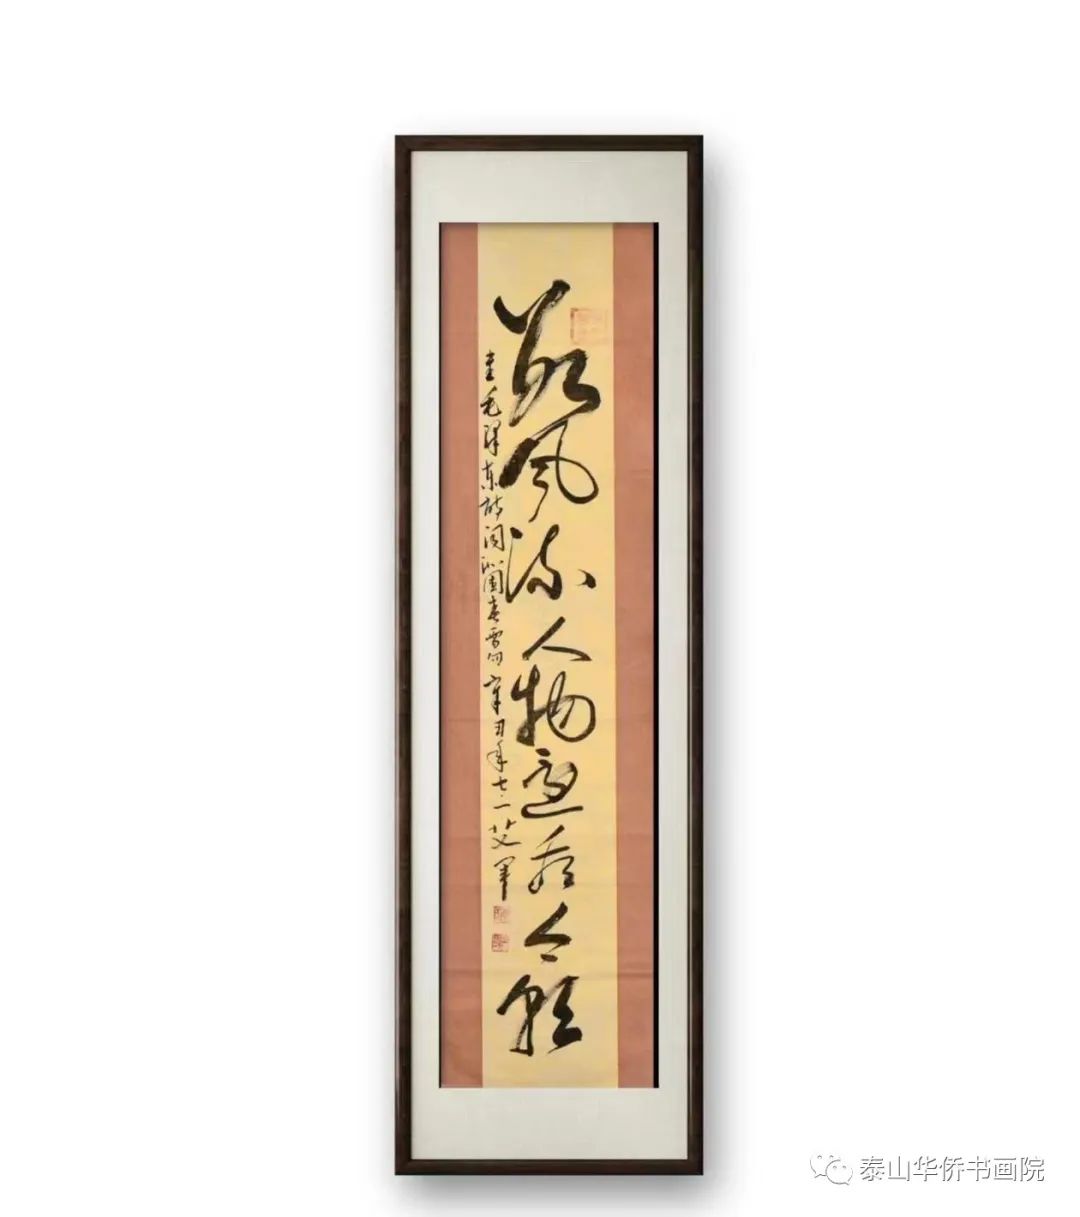 数风流人物还看今朝
毛泽东诗词沁园春雪句 辛丑年七.一 艾军
泰山华侨书画院